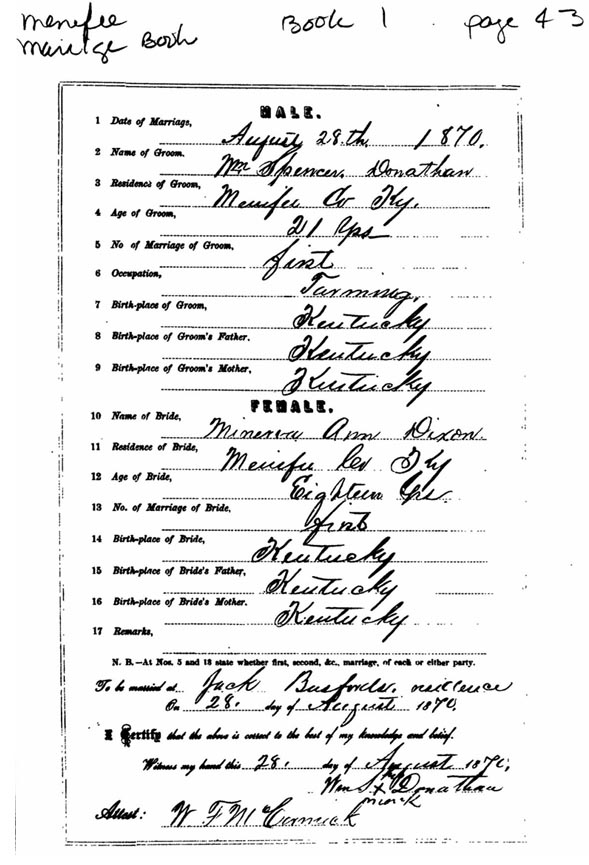 Menefee Book 1 . page 43
Marige Book
MALE.
1 Date of Marriage,
August 28th 1870.
2 Name of Groom.
Wm Spencer Donathan
3 Residence of Groom,
Menifee Co Ky.
4 Age of Groom,
21 Yrs
5 No of Marriage of Groom,
first
6 Occupation,
Farming.
7 Birth-place of Groom,
Kentucky
8 Birth-place of Groom's Father.
Kentucky
9 Birth-place of Groom's Mother,
Kentucky
FEMALE.
10 Name of Bride,
Minerva Ann Dixon
11 Residence of Bride,
Menifee Co Ky
12 Age of Bride,
Eighteen Yrs
13 No. of Marriage of Bride,
first
14 Birth-place of Bride,
Kentucky
15 Birth-place of Bride's Father,
Kentucky
16 Birth-place of Bride's Mother.
Kentucky
17 Remarks,
N. B.—At Nos. 5 and 13 state whether first, second, &c., marriage, of each or either party.
To be married at Jack residence
On 28. day of August 1870.
I Certify that the above is correct to the best of my knowledge and belief.
Witness my hand this 28. day of August 1870.
Wm S. X Donathan
his
mark
Attest: W F McCormick